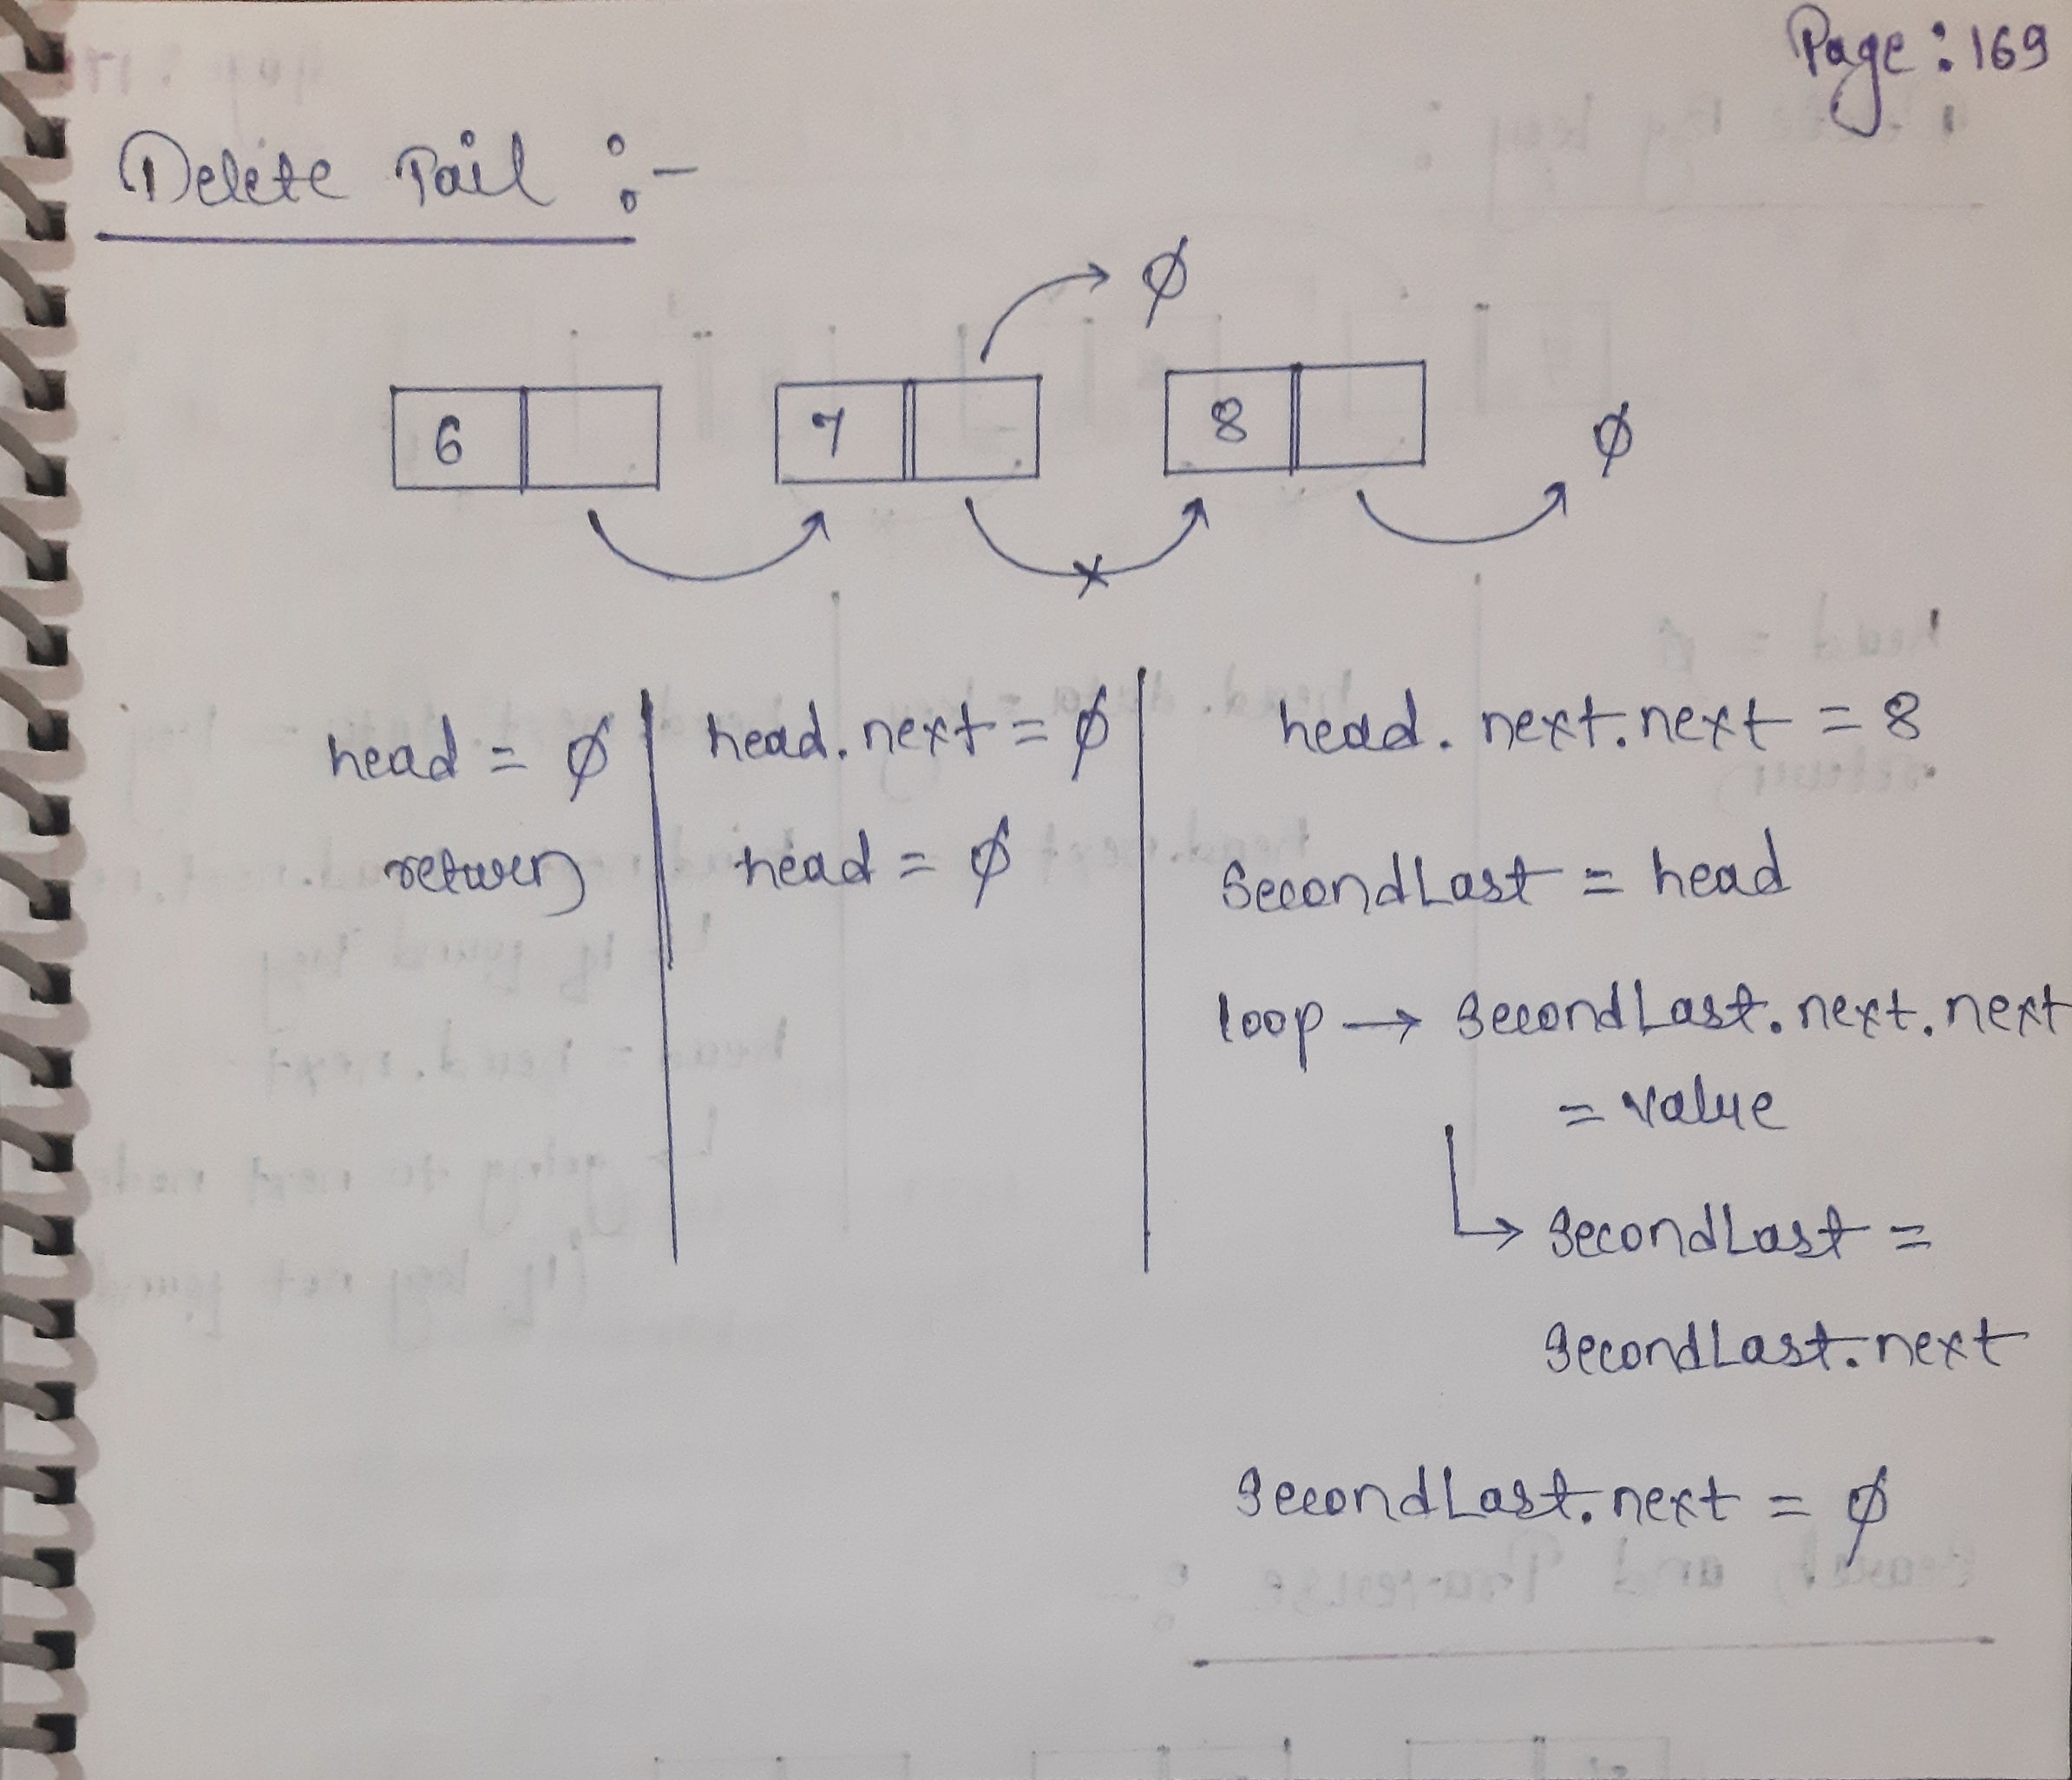 Page: 169
Delete Tail :-
ø
6 7 8 ø
head = ø
return
head.next = ø
head = ø
head.next.next = 8
SecondLast = head
loop → SecondLast.next.next
= value
↳ SecondLast =
SecondLast.next
SecondLast.next = ø